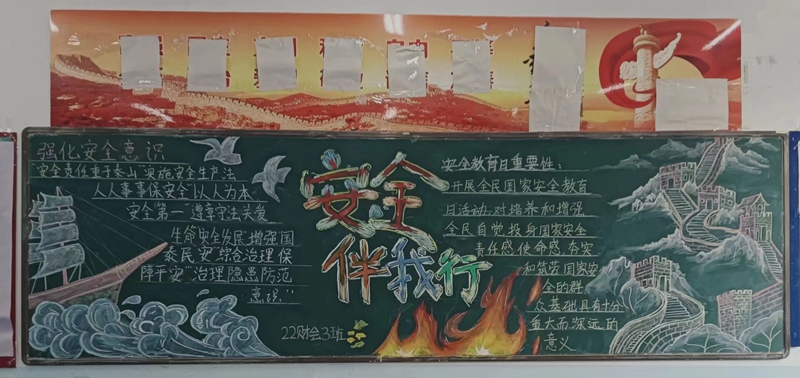 强化安全意识
安全责任重于泰山 实施安全生产法
人人事事保安全"以人为本
安全第一"遵章守法关爱
生命安全发展"增强国
泰民安"综合治理保
障平安"治理隐患防范
意识"
安全
伴我行
22财会3班
安全教育日重要性:
开展全民国家安全教育
日活动,对培养和增强
全民自觉投身国家安全
责任感,使命感,夯实
和筑劳国家安
全的群
众基础具有十分
重大而深远的
意义